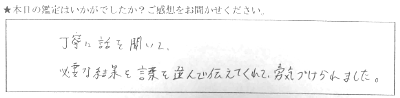 ★本日の鑑定はいかがでしたか？ご感想をお聞かせください。
丁寧に話を聞いて、
必要な結果を言葉を選んで伝えてくれて、勇気づけられました。